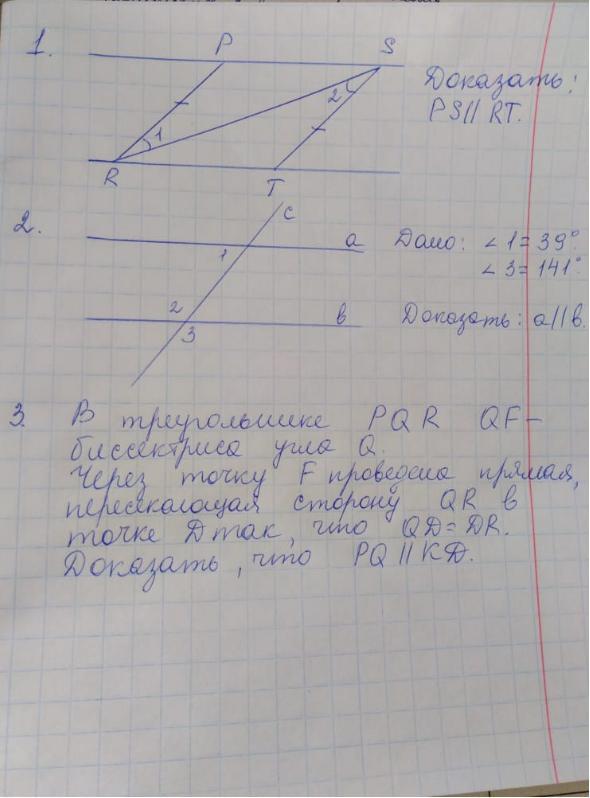 1.
P S
1 2
R T
Доказать:
PS || RT.
2.
c
1 a
2 3 b
Дано: ∠1 = 39°
∠3 = 141°
Доказать: a || b.
3. В треугольнике PQR QF –
биссектриса угла Q.
Через точку F проведена прямая,
пересекающая сторону QR в
точке D так, что QD = DR.
Доказать, что PQ || KD.